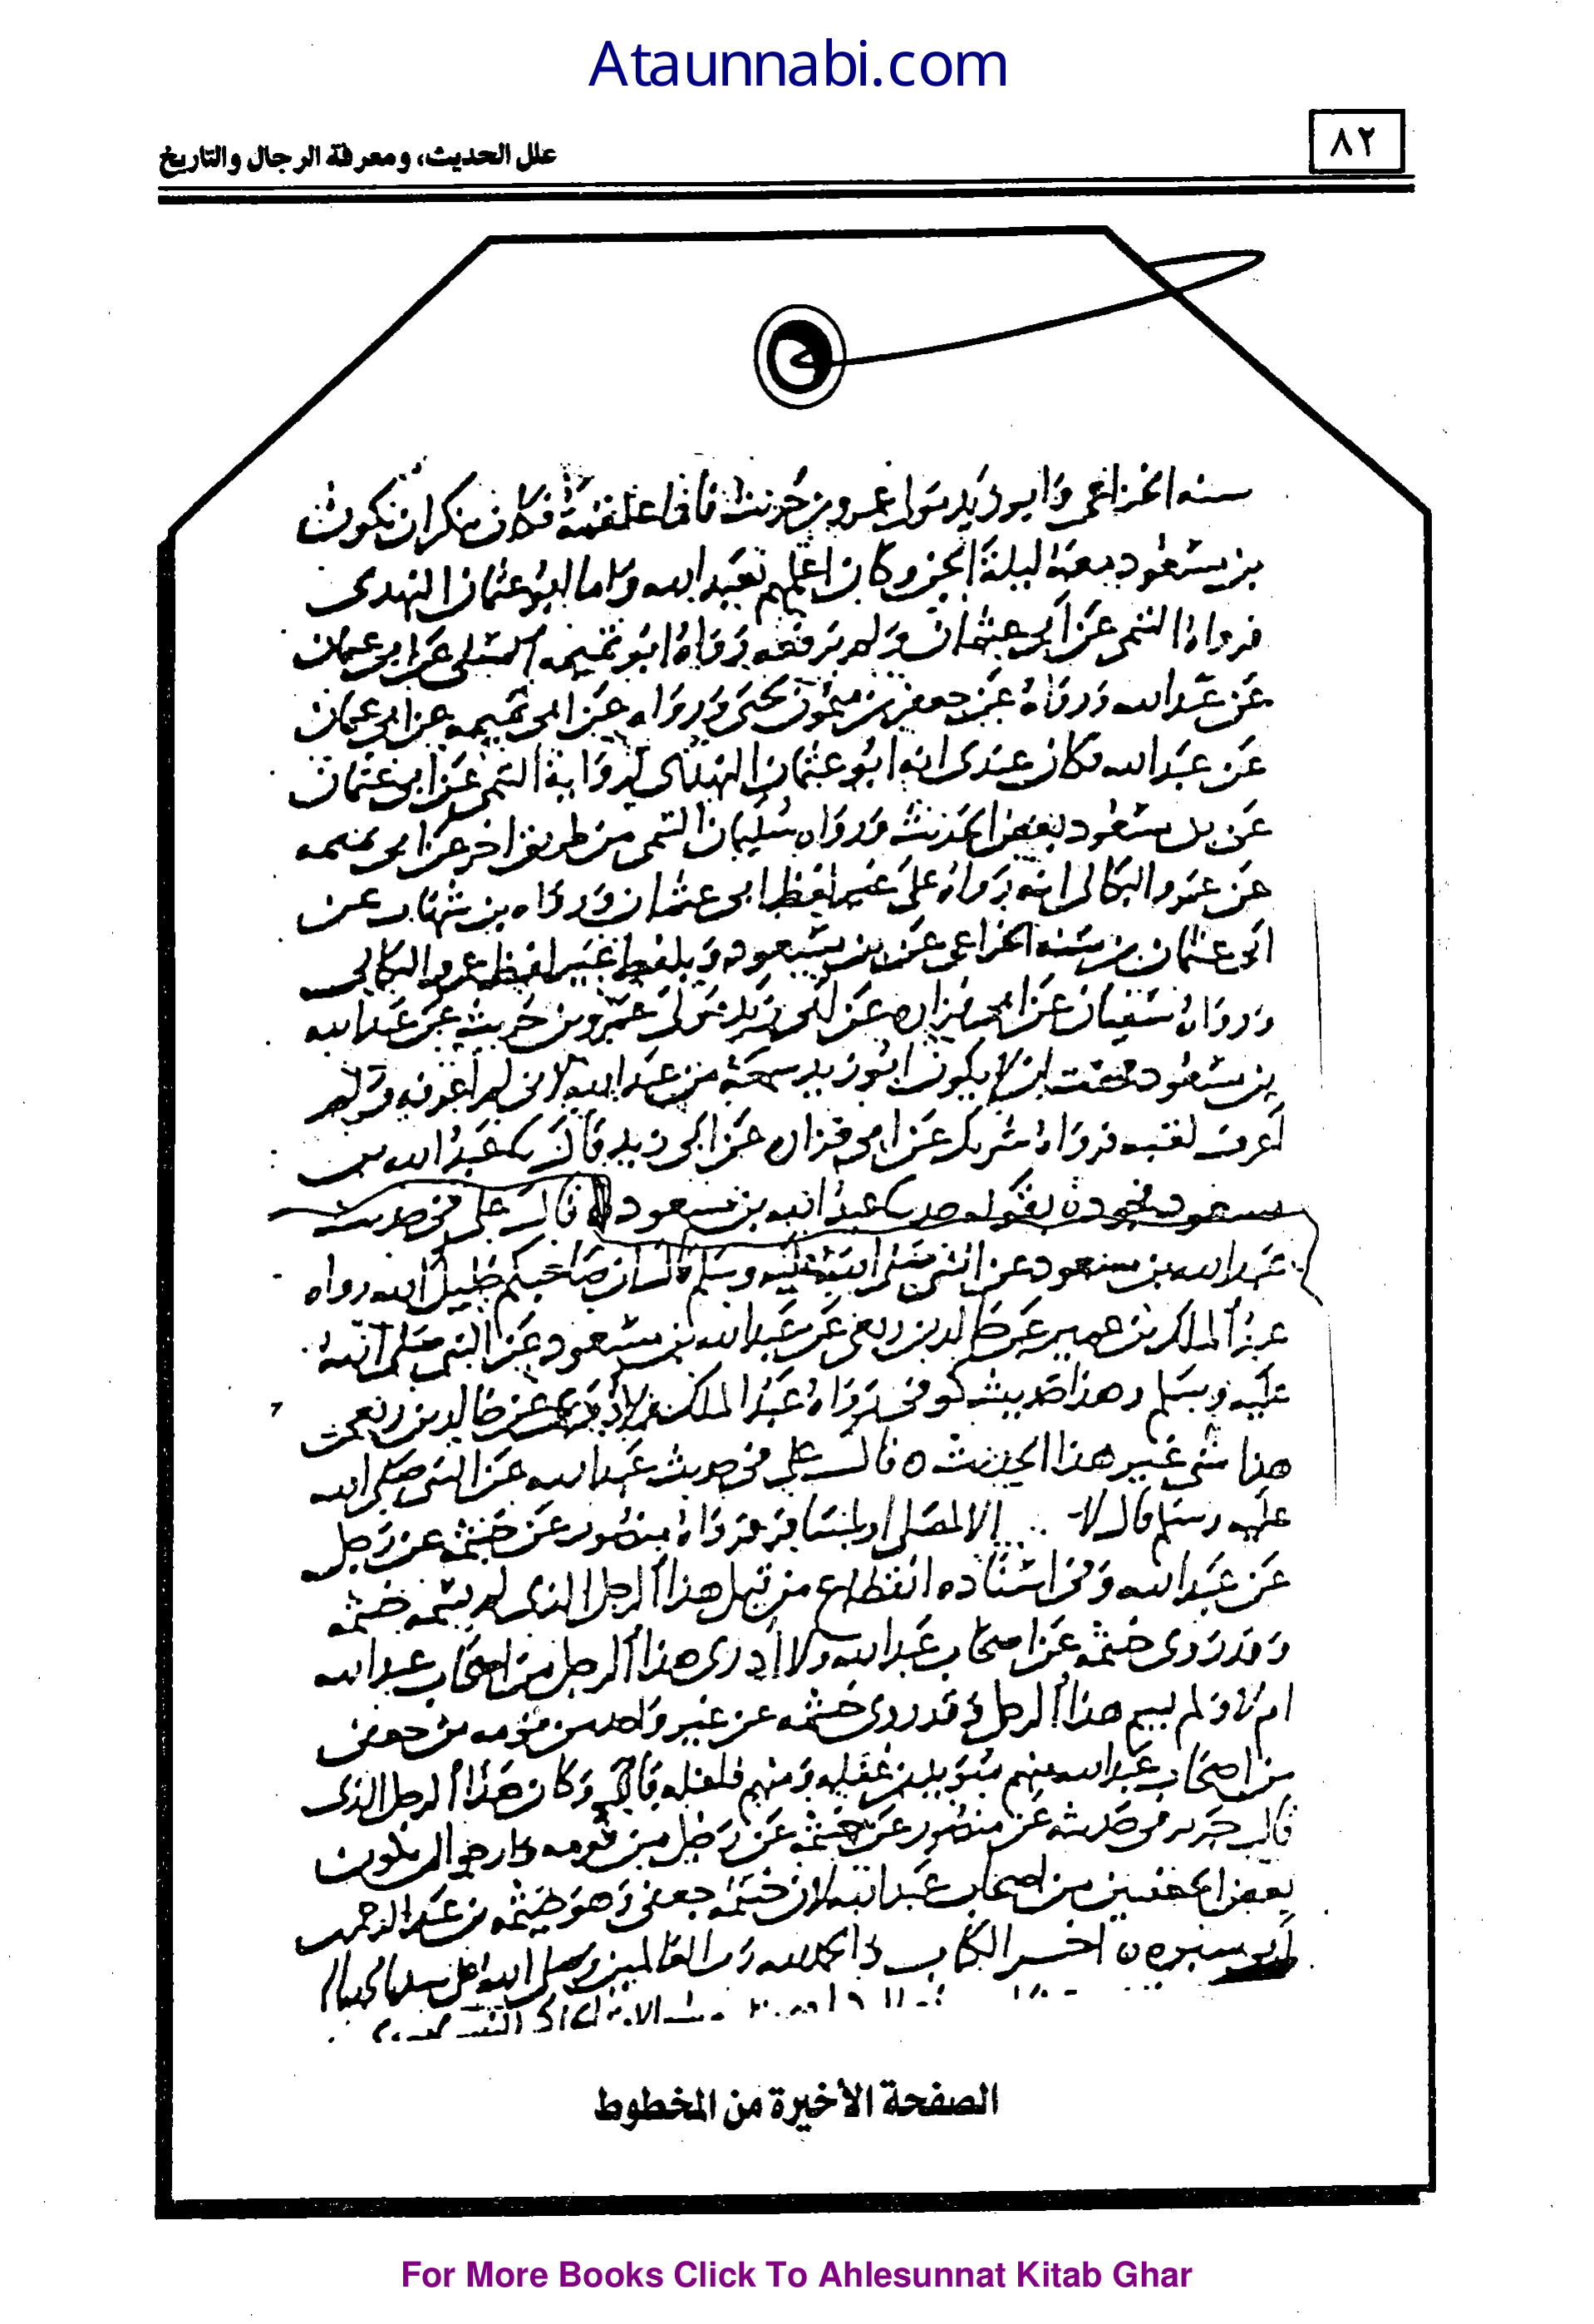 Ataunnabi.com
٨٢
علل الحديث، ومعرفة الرجال والتاريخ
سنه الخزاعي وابو زيد مولى عمرو بن حريث فاما علقمة فكان ينكر ان يكون
بن مسعود معه ليلة الجن وكان اعلمهم بعبد الله واما ابو عثمان النهدي
فرواه التيمي عن ابي عثمان ولم يرفعه ورواه ابو تميمه السلي عن ابي عثمان
عن عبد الله ورواه عن جعفر بن ميمون يحيى ورواه عن ابي تميمه عن ابي عثمان
عن عبد الله فكان عندي انه ابو عثمان النهدي لرواية التيمي عن ابي عثمان
عن بن مسعود بعض الحديث ورواه سليمان التيمي من طريق اخر عن ابي تميمه
عن عمرو البكالي انه رواه على غير لفظ ابي عثمان ورواه بن شهاب عن
ابي عثمان بن سنه الخزاعي عن بن مسعود وبلفظ غير لفظ عمرو البكالي
ورواه سفيان عن ابي فزاره عن ابي زيد مولى عمرو بن حريث عن عبد الله
بن مسعود فخفت ان لا يكون ابو زيد سمعه من عبد الله لاني لم اعرفه ولم
اعرف لقيه فرواه شريك عن ابي فزاره عن ابي زيد قال عبد الله بن
مسعود فجوده بقوله عبد الله بن مسعود ه قال علي في حديث
عبد الله بن مسعود عن النبي صلى الله عليه وسلم قال ان صاحبكم خليل الله رواه
عبد الملك بن عمير عن خالد بن ربعي عن عبد الله بن مسعود عن النبي صلى الله
عليه وسلم وهذا حديث كوفي رواه عبد الملك عن خالد بن ربعي
هذا شي غير هذا الحديث ه قال علي في حديث عبد الله عن النبي صلى الله
عليه وسلم قال لا الا لمصلي او لمسافر فرواه منصور عن خيثمه عن رجل
عن عبد الله وفي اسناده انقطاع من قبل هذا الرجل الذي لم يسمه خيثمه
وقد روى خيثمه عن اصحاب عبد الله ولا ادري هذا الرجل من اصحاب عبد الله
ام لا ولم يسم هذا الرجل وقد روى خيثمه عن غير واحد من قومه من جعفي
من اصحاب عبد الله منهم سويد بن غفله ومنهم وكان هذا الرجل الذي
قال جرير في حديثه عن منصور عن خيثمه عن رجل من قومه فارجو ان يكون
بعض الجعفيين من اصحاب عبد الله لان خيثمه جعفي وهو خيثمه بن عبد الرحمن
بن ابي سبره ه اخر الكتاب والحمد لله رب العالمين وصلى الله على
الصفحة الأخيرة من المخطوط
For More Books Click To Ahlesunnat Kitab Ghar